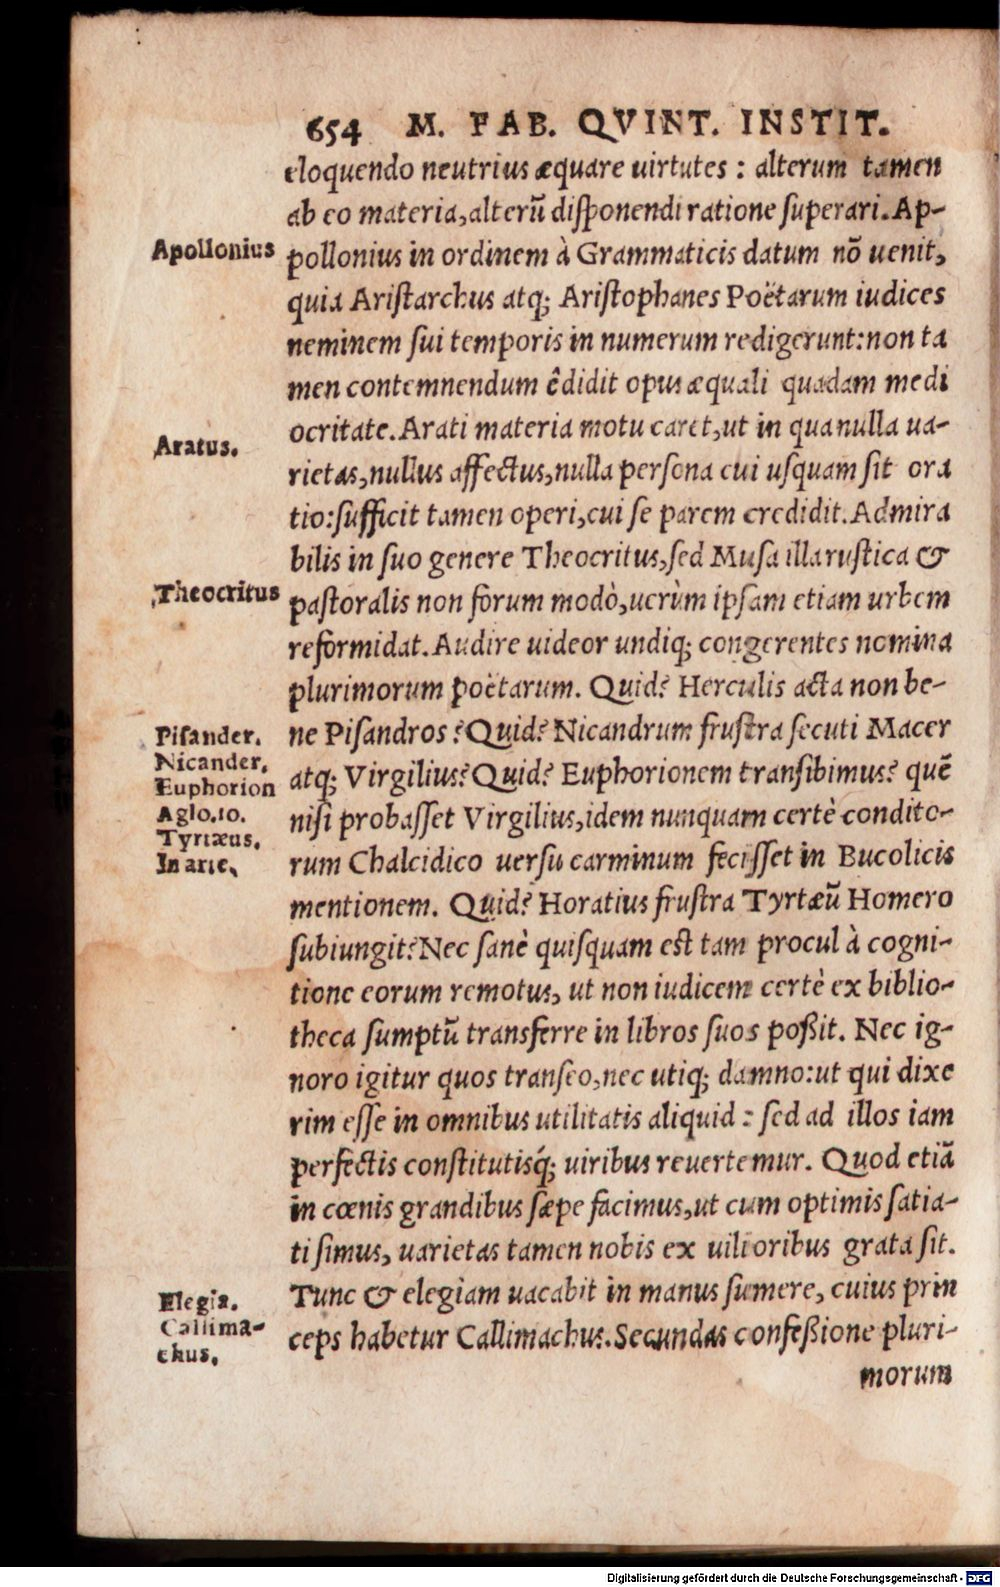 654 M. FAB. QVINT. INSTIT.
eloquendo neutrius æquare uirtutes : alterum tamen
ab eo materia, alterũ diſponendi ratione ſuperari. Ap-
Apollonius
pollonius in ordinem à Grammaticis datum nõ uenit,
quia Ariſtarchus atq; Ariſtophanes Poëtarum iudices
neminem ſui temporis in numerum redigerunt: non ta
men contemnendum êdidit opus æquali quadam medi
ocritate. Arati materia motu caret, ut in qua nulla ua-
Aratus.
rietas, nullus affectus, nulla perſona cui uſquam ſit ora
tio: ſufficit tamen operi, cui ſe parem credidit. Admira
bilis in ſuo genere Theocritus, ſed Muſa illa ruſtica &
Theocritus
paſtoralis non forum modò, uerùm ipſam etiam urbem
reformidat. Audire uideor undiq; congerentes nomina
plurimorum poëtarum. Quid? Herculis acta non be-
Piſander.
ne Piſandros? Quid? Nicandrum fruſtra ſecuti Macer
Nicander.
Euphorion
atq; Virgilius? Quid? Euphorionem tranſibimus? quẽ
Aglo.10.
niſi probaſſet Virgilius, idem nunquam certè condito-
Tyrtæus.
In arte.
rum Chalcidico uerſu carminum feciſſet in Bucolicis
mentionem. Quid? Horatius fruſtra Tyrtæũ Homero
ſubiungit? Nec ſanè quiſquam eſt tam procul à cogni-
tione eorum remotus, ut non iudicem certè ex biblio-
theca ſumptũ transferre in libros ſuos poßit. Nec ig-
noro igitur quos tranſeo, nec utiq; damno: ut qui dixe
rim eſſe in omnibus utilitatis aliquid : ſed ad illos iam
perfectis conſtitutisq́; uiribus reuertemur. Quod etiã
in cœnis grandibus ſæpe facimus, ut cum optimis ſatia-
ti ſimus, uarietas tamen nobis ex uilioribus grata ſit.
Elegia.
Tunc & elegiam uacabit in manus ſumere, cuius prin
Callima-
chus.
ceps habetur Callimachus. Secundas confeßione pluri-
morum
Digitalisierung gefördert durch die Deutsche Forschungsgemeinschaft - DFG